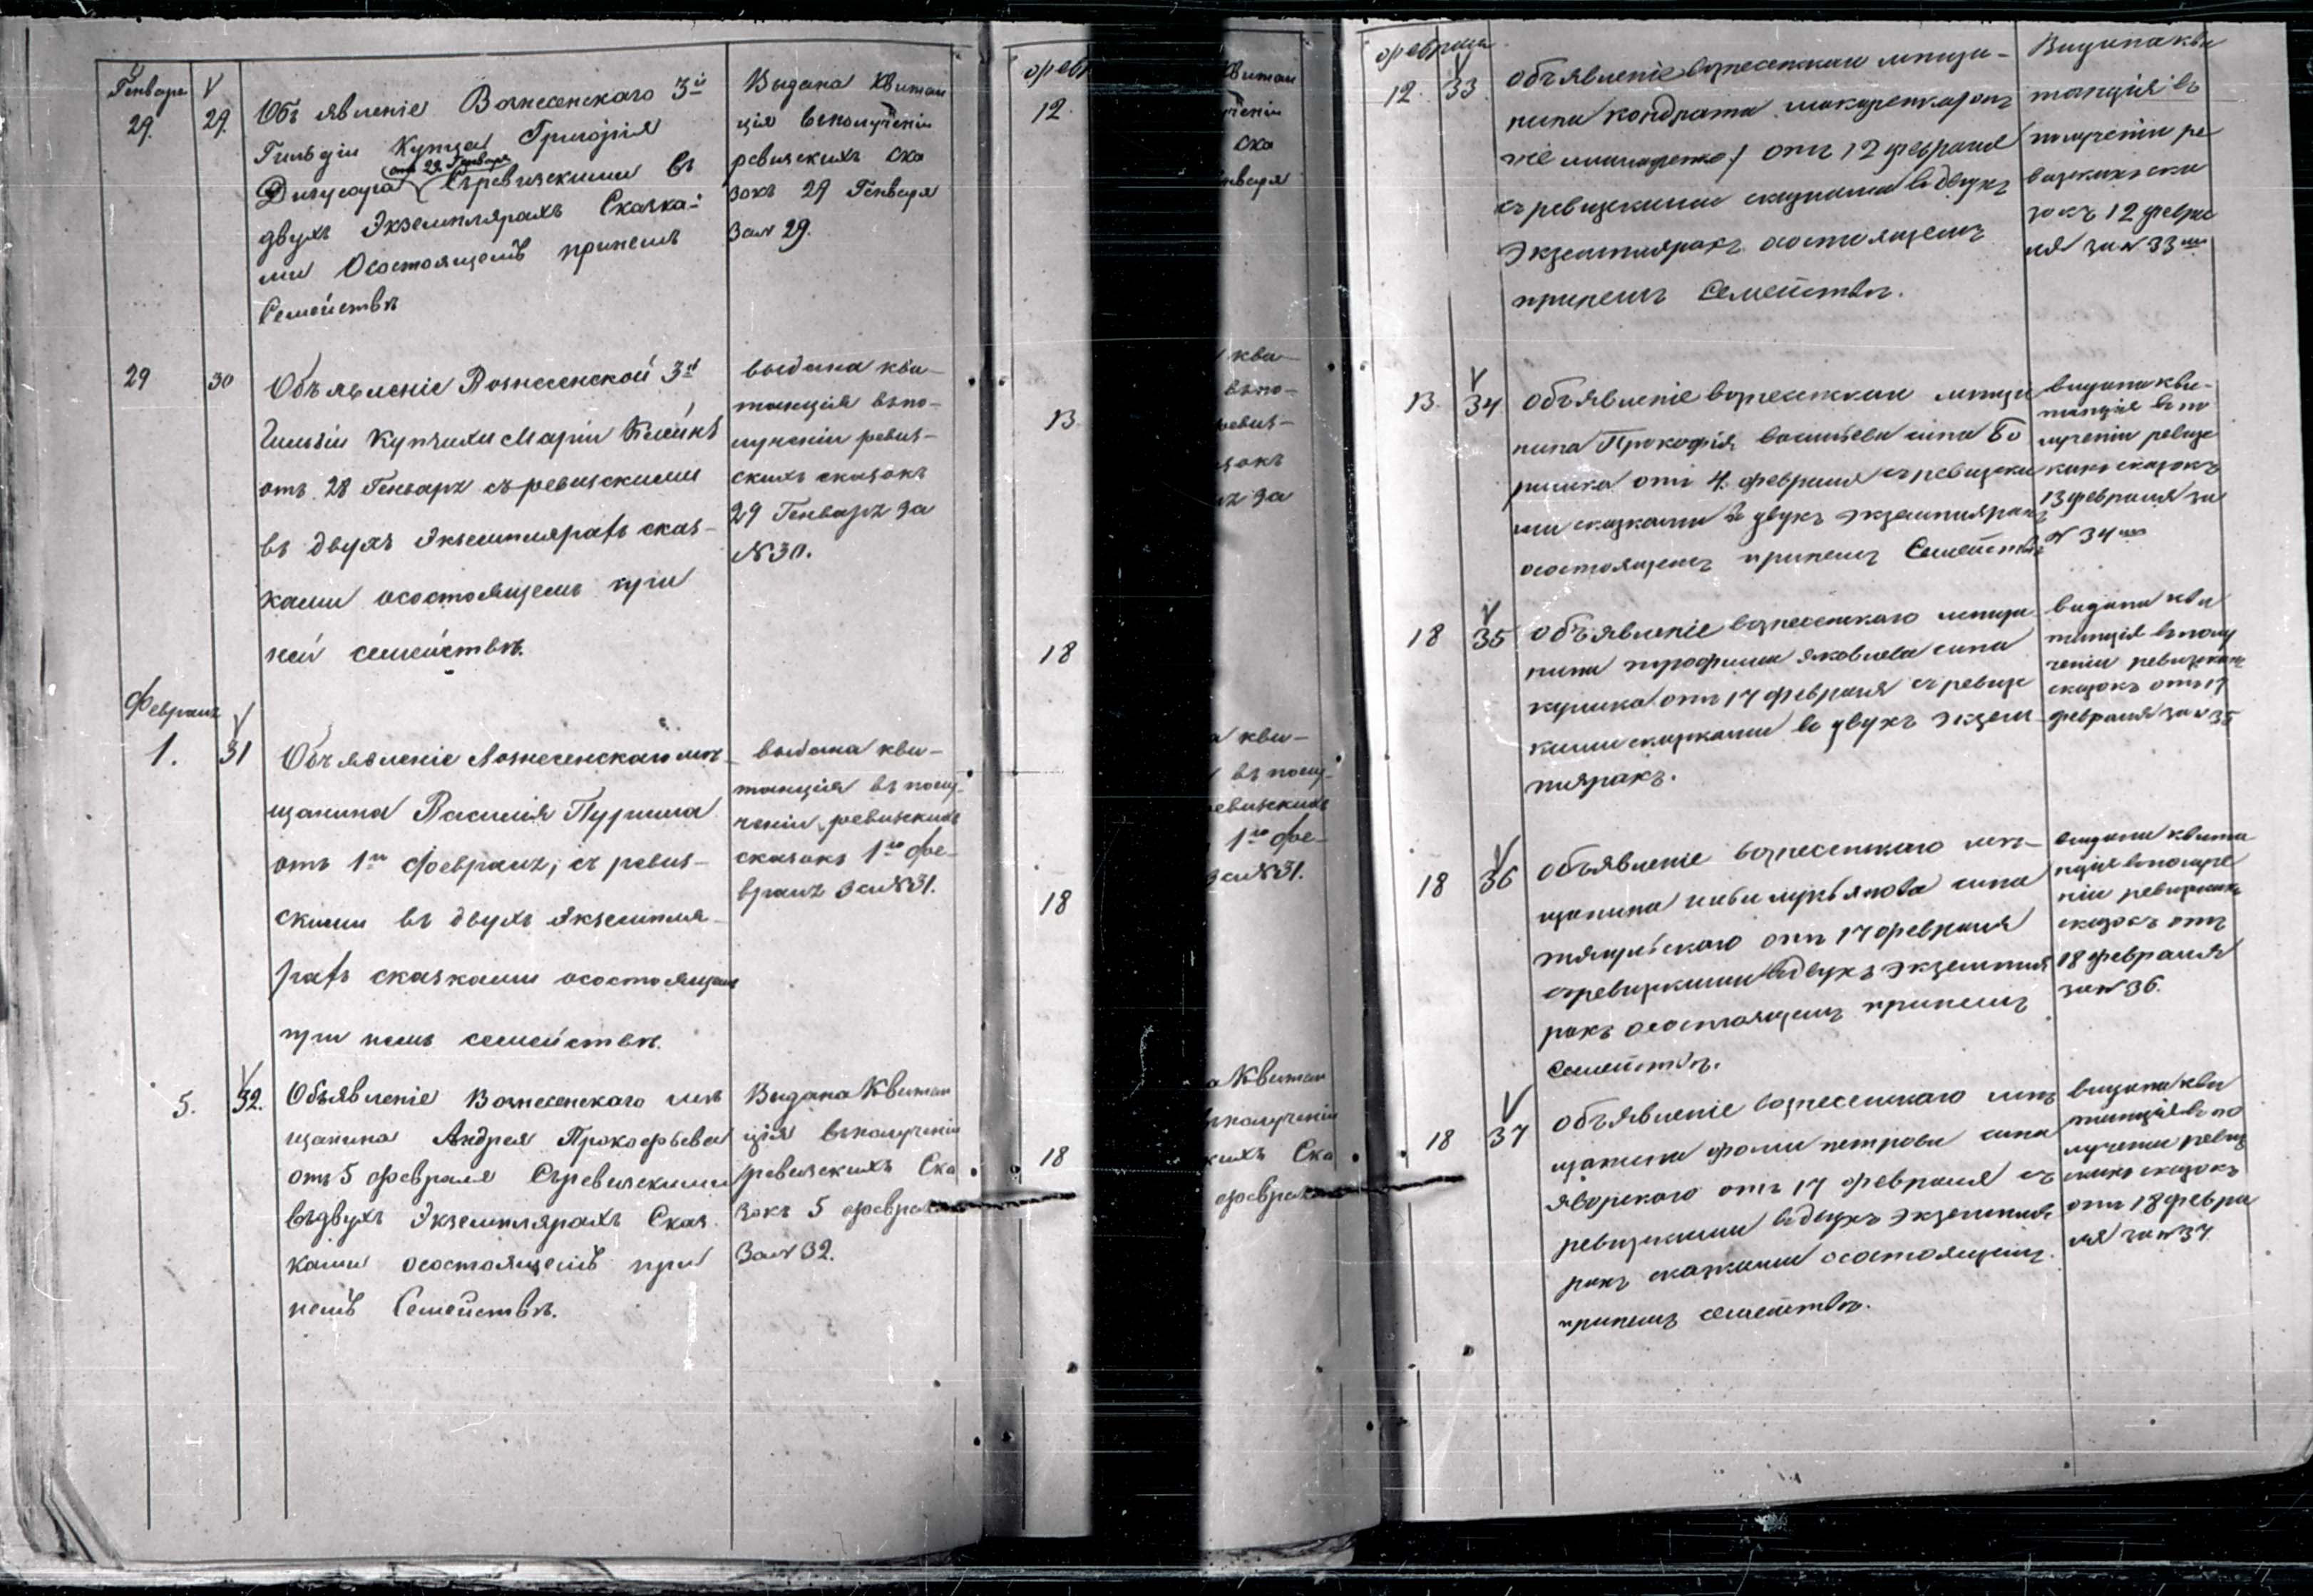 Генваря
29.
29.
Объявленіе Вознесенскаго 3й
Гильдіи Купца Григорія
отъ 29 Генваря
Съ ревизскими въ
двухъ Экземплярахъ Сказка-
ми Осостоящемъ принемъ
Семействѣ
Выдана Квитан
ція вполученіи
ревизскихъ ска
зокъ 29 Генваря
За № 29.
29
30
Объявленіе Вознесенской 3й
Гильдіи Купчихи Маріи
отъ 28 Генваря съ ревизскими
въ двухъ экземплярахъ сказ-
ками осостоящемъ при
ней семействѣ.
выдана кви-
танція впо-
лученіи ревиз-
скихъ сказокъ
29 Генваря за
№ 30.
Февраля
1.
31
Объявленіе Вознесенскаго мѣ-
щанина Василія
отъ 1го февраля, съ ревиз-
скими въ двухъ экземпля-
рахъ сказками осостоящемъ
при немъ семействѣ.
выдана кви-
танція въ полу-
ченіи ревизскихъ
сказокъ 1го фе-
враля за № 31.
5.
32.
Объявленіе Вознесенскаго мѣ
щанина Андрея Прокофьева
отъ 5 февраля Съ ревизскими
въ двухъ Экземплярахъ Сказ
ками осостоящемъ при
немъ Семействѣ.
Выдана Квитан
ція вполученіи
ревизскихъ Ска
зокъ 5 февраля
За № 32.
февр
12.
13
18
18
18
Квитан
ска
кви-
впо-
ревиз-
за
кви-
въ полу-
ревизскихъ
1го фе-
за № 31.
Квитан
вполученіи
Ска
феврал
февраля
12.
33
объявленіе вознесенскаго мѣща-
нина кондрата
отъ 12 февраля
съ ревизскими сказками вдвухъ
экземплярахъ осостоящемъ
принемъ Семействѣ.
Видана кви
танція въ
получении ре
визскихъ ска
зокъ 12 февра
ля за № 33
13
34
объявленіе вознесенскаго мѣща
нина Прокофія васильева сина
отъ 4. февраля съ ревизски
ми сказками в двухъ экземплярахъ
осостоящемъ принемъ Семействѣ
видана кви-
танція в по
лученіи ревиз
скихъ сказокъ
13 февраля за
№ 34
18
35
объявленіе вознесенскаго мѣща
нина трофима яковлева сина
отъ 17 февраля съ ревизс
кими сказками в двухъ экзем
плярахъ.
видана кви
танція вполу
ченіи ревизскихъ
сказокъ отъ 17
февраля за № 35
18
36
объявленіе вознесенскаго мѣ-
щанина лукьянова сина
отъ 17 февраля
съ ревизскими вдвухъ экземпля
рахъ осостоящемъ принемъ
Семействѣ.
видана квита
нція вполуче
ніи ревизскихъ
сказокъ отъ
18 февраля
за № 36.
18
37
объявленіе вознесенскаго мѣ
щанина фоми петрова сина
яворскаго отъ 17 февраля съ
ревизскими вдвухъ экземпля
рахъ сказками осостоящемъ
принемъ семействѣ.
видана кви
танція в по
лучении ревиз
скихъ сказокъ
отъ 18 февра
ля за № 37.